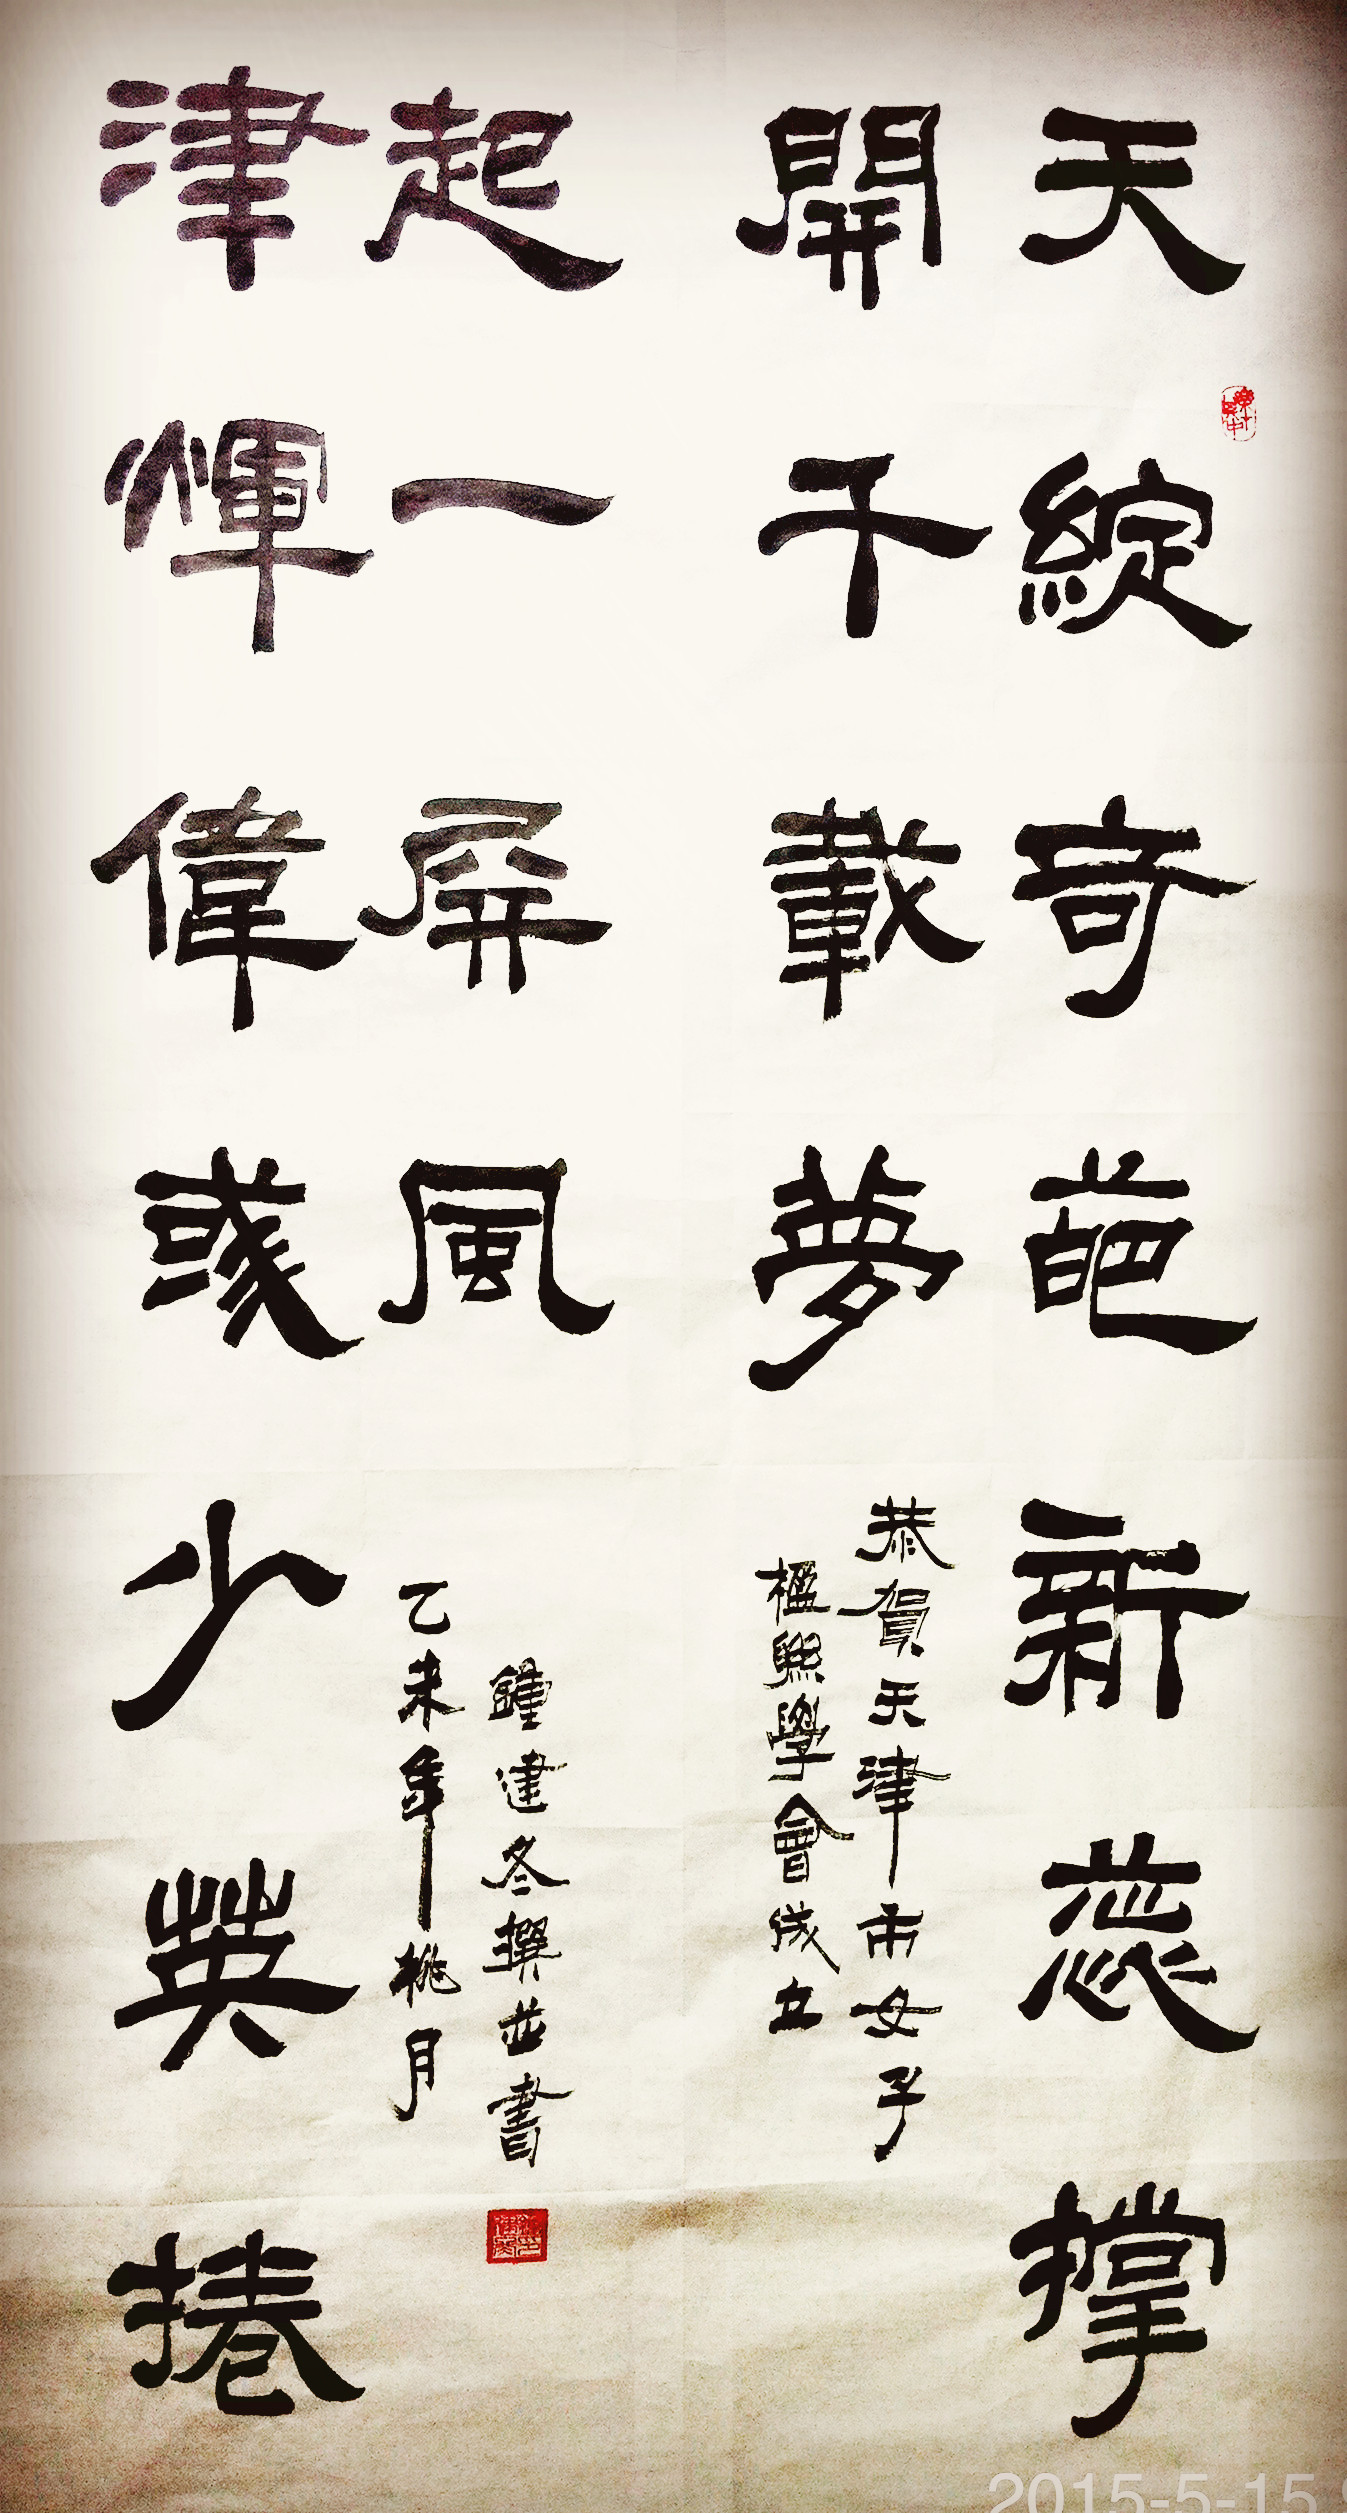 天綻奇葩新蕊撑
開千載夢
恭賀天津市女子
楹聯學會成立
起一屏風
津輝偉彧少英捲
鍾建冬撰並書
乙未年桃月
2015-5-15